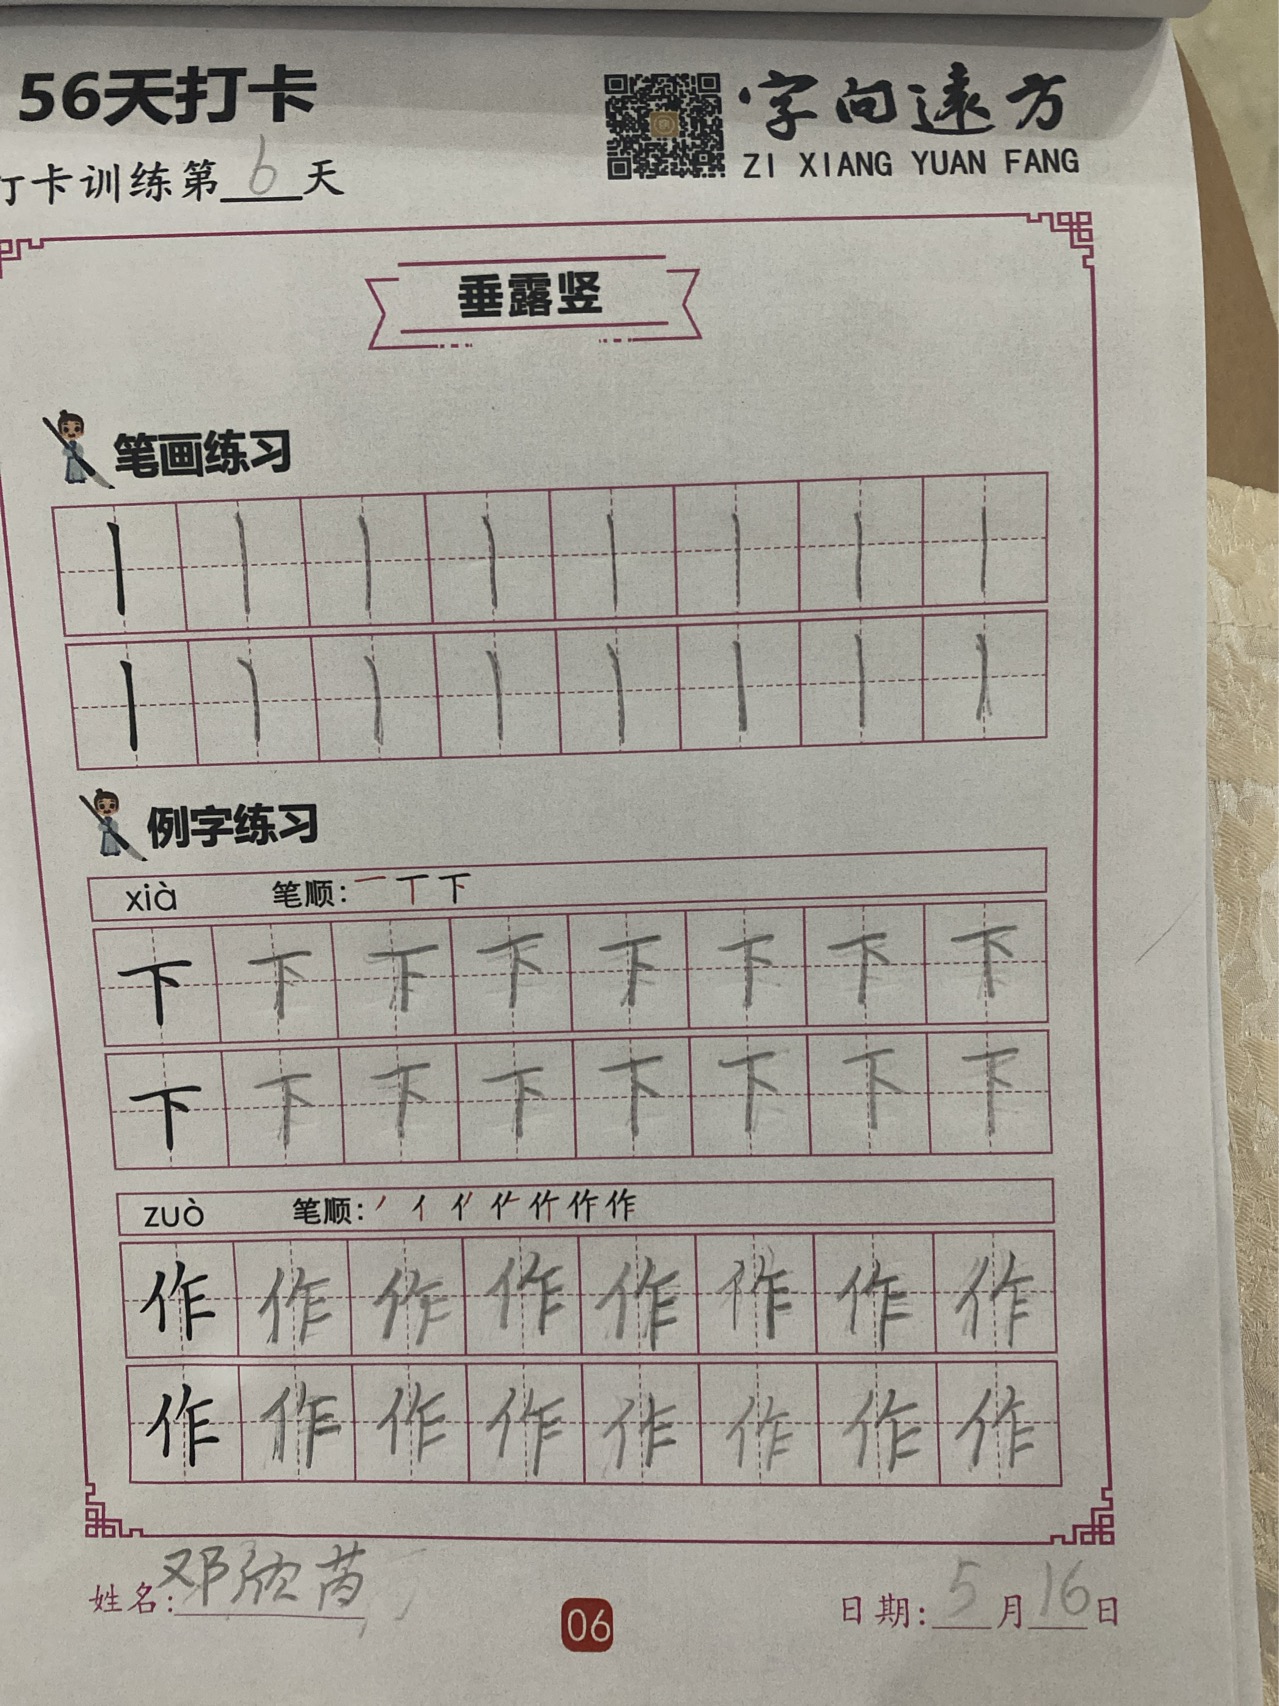 56天打卡
字向遠方
ZI XIANG YUAN FANG
打卡训练第6天
垂露竖
笔画练习
丨丨丨丨丨丨丨丨
丨丨丨丨丨丨丨丨
例字练习
xià 笔顺: 一 丅 下
下下下下下下下下
下下下下下下下下
zuò 笔顺:
作作作作作作作作
作作作作作作作作
姓名:邓欣芮
06
日期:5月16日